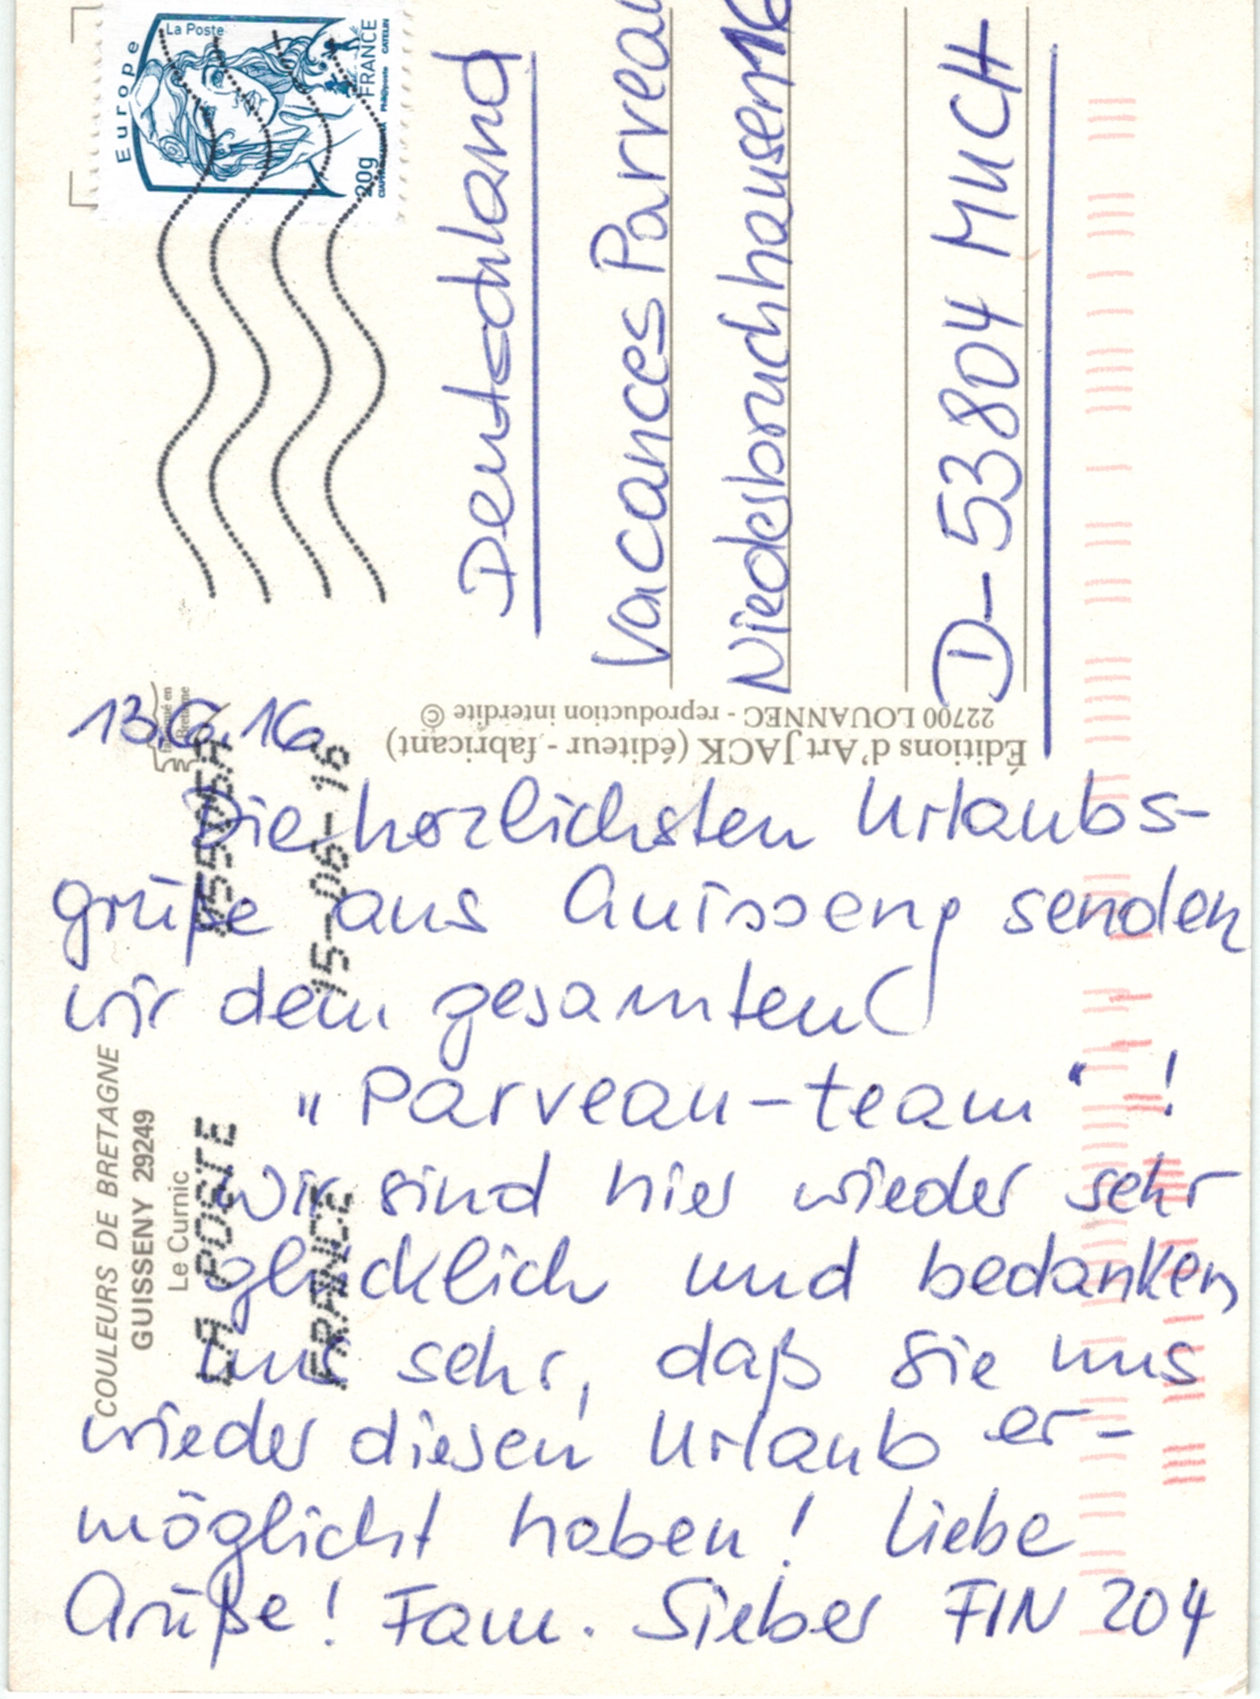 Europe
La Poste
FRANCE
20g
Deutschland
Vacances Parveau
Niederbruchhausen 16
D-53804 MUCH
Éditions d'Art JACK (éditeur - fabricant)
22700 LOUANNEC - reproduction interdite ©
COULEURS DE BRETAGNE
GUISSENY 29249
Le Curnic
LA POSTE
FRANCE
15-06-16
13.6.16
Die herzlichsten Urlaubs-
grüße aus Guisseny senden
wir dem gesamten
„Parveau-team“!
Wir sind hier wieder sehr
glücklich und bedanken
uns sehr, daß Sie uns
wieder diesen Urlaub er-
möglicht haben! Liebe
Grüße! Fam. Sieber FIN 204